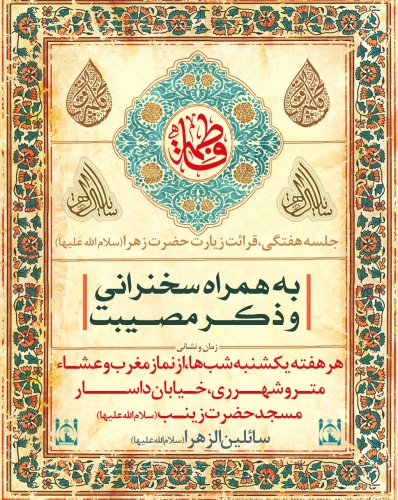 فاطمة
جلسه هفتگی، قرائت زیارت حضرت زهرا (سلام‌الله‌علیها)
به همراه سخنرانی
و ذکر مصیبت
زمان و نشانی
هر هفته یکشنبه شب‌ها، از نماز مغرب و عشاء
مترو شهرری، خیابان داسار
مسجد حضرت زینب (سلام‌الله‌علیها)
سائلین الزهرا (سلام‌الله‌علیها)